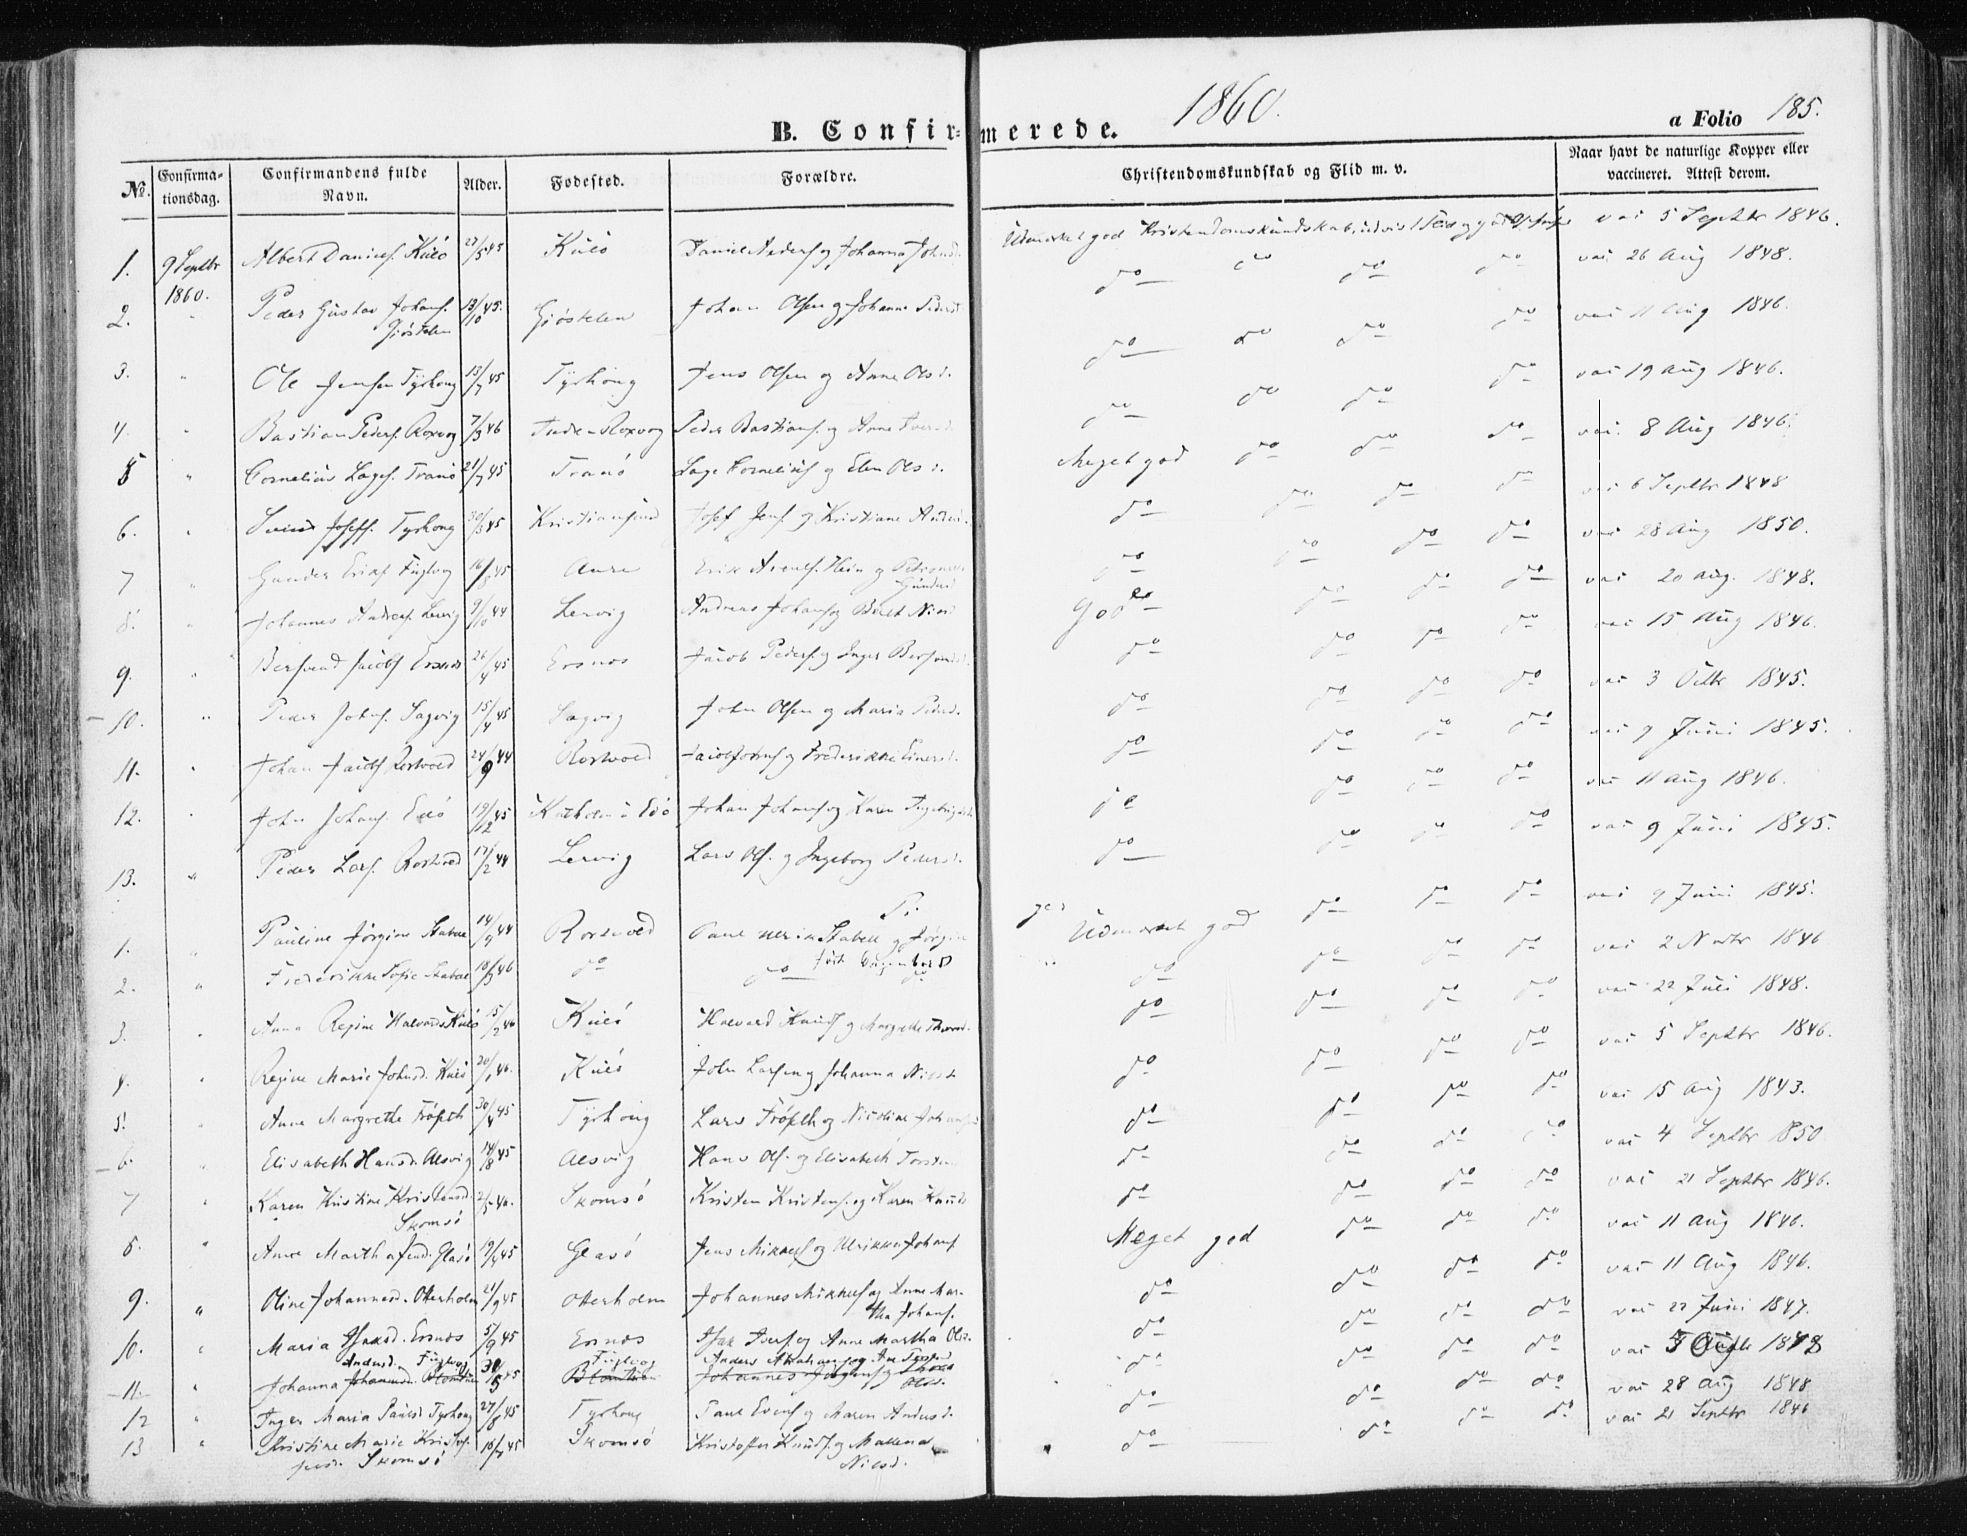 1860.
B. Confirmerede.
a Folio 185.
№. Confirmationsdag. Confirmandens fulde Navn. Alder. Fødested. Forældre. Christendomskundskab og Flid m. v. Naar havt de naturlige Kopper eller vaccineret. Attest derom.
1. 9 Septbr 1860. Albert Daniels. Kulö 27/5 45 Kulö Daniel Anders. og Johanna Johnsd. Udmerket god Kristendomskundskab, udvist Flid og god vac 5 Septbr 1846.
2. " Peder Gustav Johans. Gjöstelen 13/10 45. Gjöstelen Johan Olsen og Johanna Pedersd. do do do do vac 26 Aug 1848.
3. " Ole Jensen Tyrhoug 15/7 45 Tyrhoug Jens Olsen og Anne Olsd. do do do do vac 11 Aug 1846.
4. " Bastian Peders. Roxvog 7/3 46 Roxvog Peder Bastians. og Anne do do do do vac 19 Aug 1846.
5 " Cornelius Lages. Tranö 21/7 45 Tranö Lage Cornelius og Elen Olsd. Meget god do do do vac. 8 Aug 1846.
6. " Josefs. Tyrhoug 30/3 45 Kristiansund Josef Jens. og Kristiane Andersd. do do do do vac 6 Septbr 1848
7 " Gunder Eriks. Fuglvog 16/8 45 Aure Erik Arents. Hein og Petronelle Gundersd do do do do vac 28 Aug 1850.
8. " Johannes Andreas. Lervig 9/10 44 Lervig Andreas Johans. og Berit Nilsd God do do do vac 20 Aug. 1848.
9. " Bersvend Jacobs. Ersnes 26/4 45 Ersnes Jacob Peders. og Inger Bersvendsd. do do do do vac 15 Aug 1846.
10. " Peder Johns. Sagvig 15/4 45 Sagvig John Olsen og Maria Pedersd. do do do do vac 3 Octbr 1845.
11. " Johan Jacobs. Rostvold 24/9 44 Rostvold Jacob Johns. og Frederikke Einersd. do do do do vac 9 Juni 1845.
12. " John Johans. Edö 19/12 45 Kulholm i Edö Johan Johans. og Karen do do do do vac 11 Aug 1846.
13. " Peder Lars. Rostvold 17/2 44 Lervig Lars Ols. og Ingeborg Pedersd. do do do do vac 9 Juni 1845.
1. " Pauline Jörgine Stabel 14/9 44 Rostvold Stabell og Jörgine Udmerket god do do do vac 9 Juni 1845.
2. " Frederikke Sofie Stabel 18/3 46 do do do do do do do vac 2 Novbr 1846
3. " Anna Regine Halvards. Kulö 15/2 46 Kulö Halvard Knuds. og Margrethe do do do do vac 22 Juli 1848.
4. " Regine Marie Johnsd. Kulö 20/1 46. Kulö John Larsen og Johanna Nilsd. do do do do vac 5 Septbr 1846.
5. " Anne Margrethe Fröseth 30/4 45 Tyrhoug Lars Fröseth og Nicoline do do do do vac 15 Aug 1843.
6. " Elisabeth Hansd. Alsvig 14/8 45 Alsvig Hans Ols. og Elisabeth do do do do vac 4 Septbr 1850
7 " Karen Kristine Kristensd. Skomsö 2/5 46. Skomsö Kristen Kristens. og Karen Knudsd do do do do vac 21 Septbr 1846.
8. " Anne Martha Jensd. Glasö 19/4 45 Glasö Jens Mikkels. og Ulrikke Johans. Meget god do do do vac 11 Aug 1846.
9. " Oline Johannesd. Otterholm 21/9 45 Otterholm Johannes Mikkels. og Anne Martha Johans. do do do do vac 11 Aug 1846.
10. " Maria Isaksd. Ersnes 5/9 45 Ersnes Isak Ivers. og Anne Martha Olsd. do do do do vac 22 Juni 1847.
11. " Johanna Andersd. Fuglvog 30/5 45 Fuglvog Anders Abrahams. og An do do do do vac 3 1848
12 " Inger Maria Paulsd Tyrhoug 27/8 45 Tyrhoug Paul Evens. og Maren Andersd. do do do do vac 28 Aug 1848
13 " Kristine Marie Kristofersd. Skomsö 16/7 45 Skomsö Kristoffer Knuds. og Mallena Nilsd. do do do do vac 21 Septbr 1846